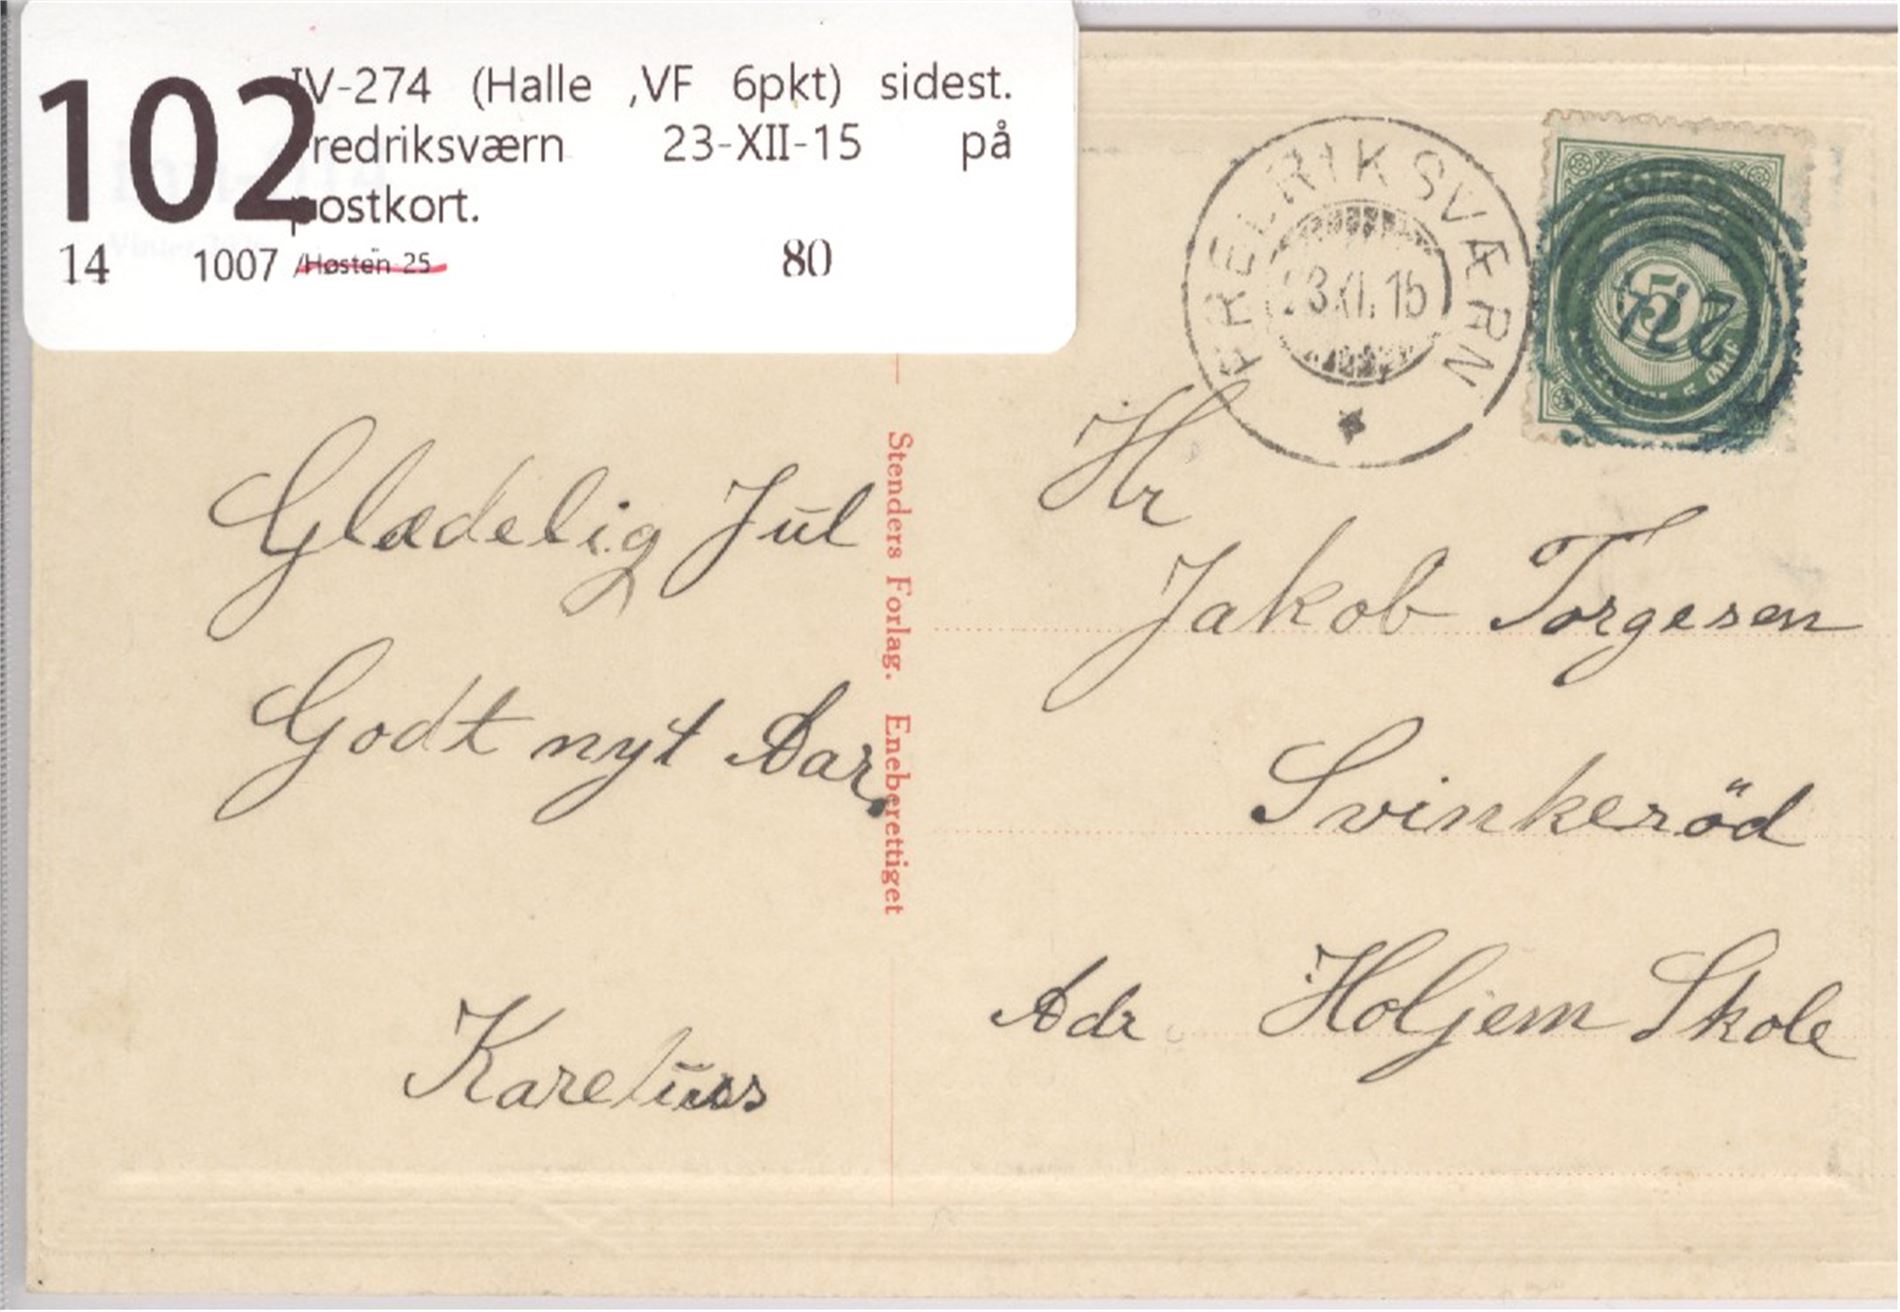 102
IV-274 (Halle ,VF 6pkt) sidest.
redriksværn 23-XII-15 på
postkort.
14 1007 /Høsten 25 80
FREDRIKSVÆRN
23 XII. 15
274
5
Hr
Jakob Torgesen
Svinkeröd
Adr Holjem Skole
Glædelig Jul
Godt nyt Aar.
Karelius
Stenders Forlag. Eneberettiget